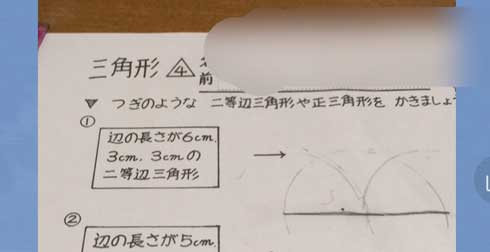 三角形 4
前
つぎのような 二等辺三角形や正三角形を かきましょ
①
辺の長さが6cm,
3cm, 3cmの
二等辺三角形
②
辺の長さが5cm,